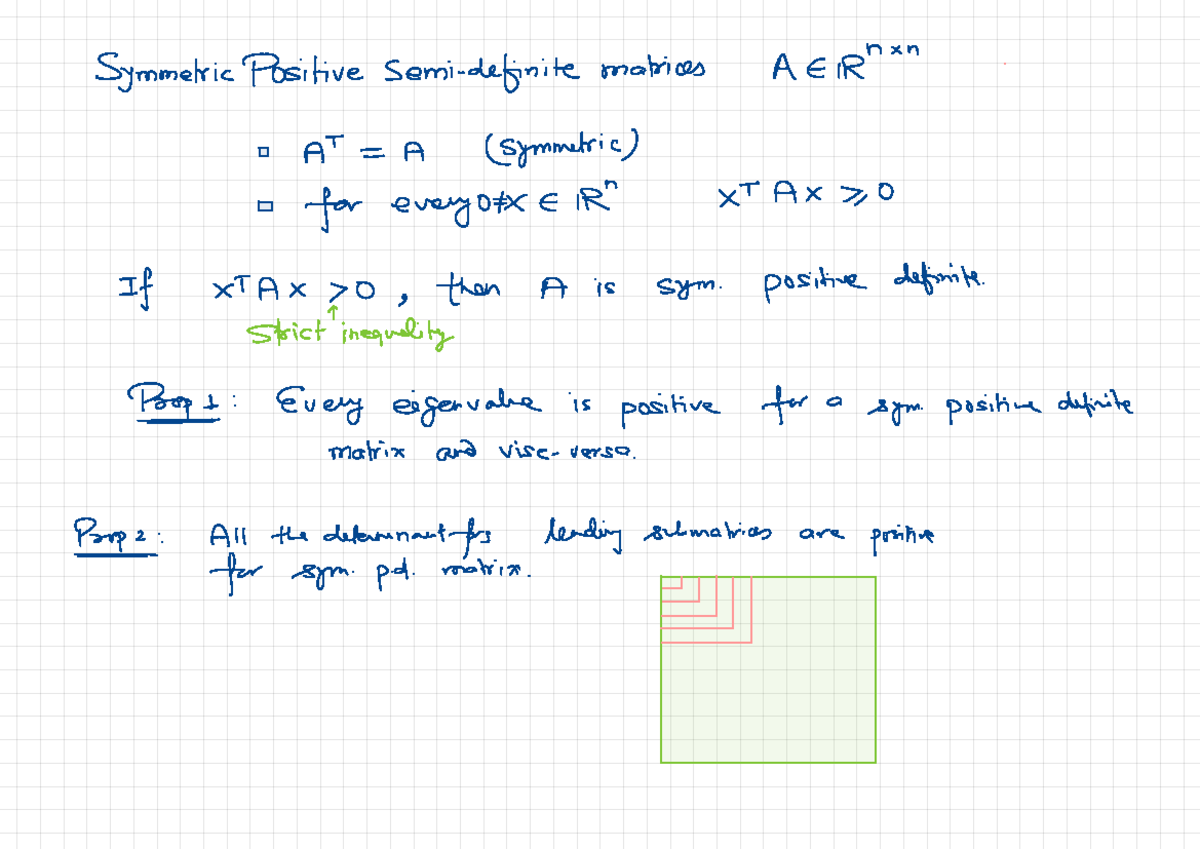 Symmetric Positive Semi-definite matrices A ∈ ℝⁿˣⁿ
▫ Aᵀ = A (symmetric)
▫ for every 0≠x ∈ ℝⁿ xᵀAx ⩾ 0
If xᵀAx > 0, then A is sym. positive definite.
↑
Strict inequality
Prop 1: Every eigenvalue is positive for a sym. positive definite
matrix and vise-versa.
Prop 2: All the determinant leading submatrices are positive
for sym. p.d. matrix.